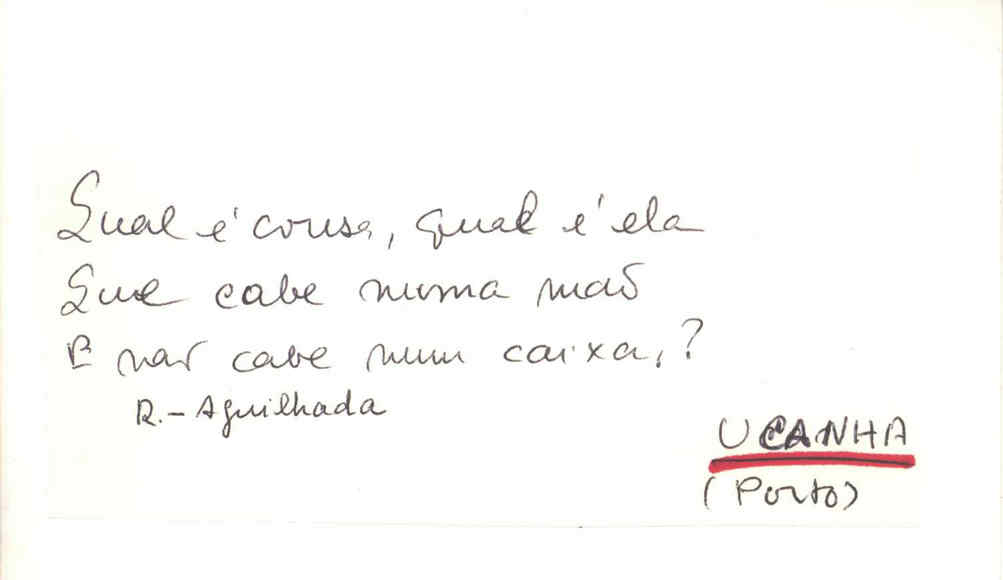 Qual é cousa, qual é ela
Que cabe numa mão
E não cabe num caixa,?
R.- Aguilhada
UCANHA
(Porto)